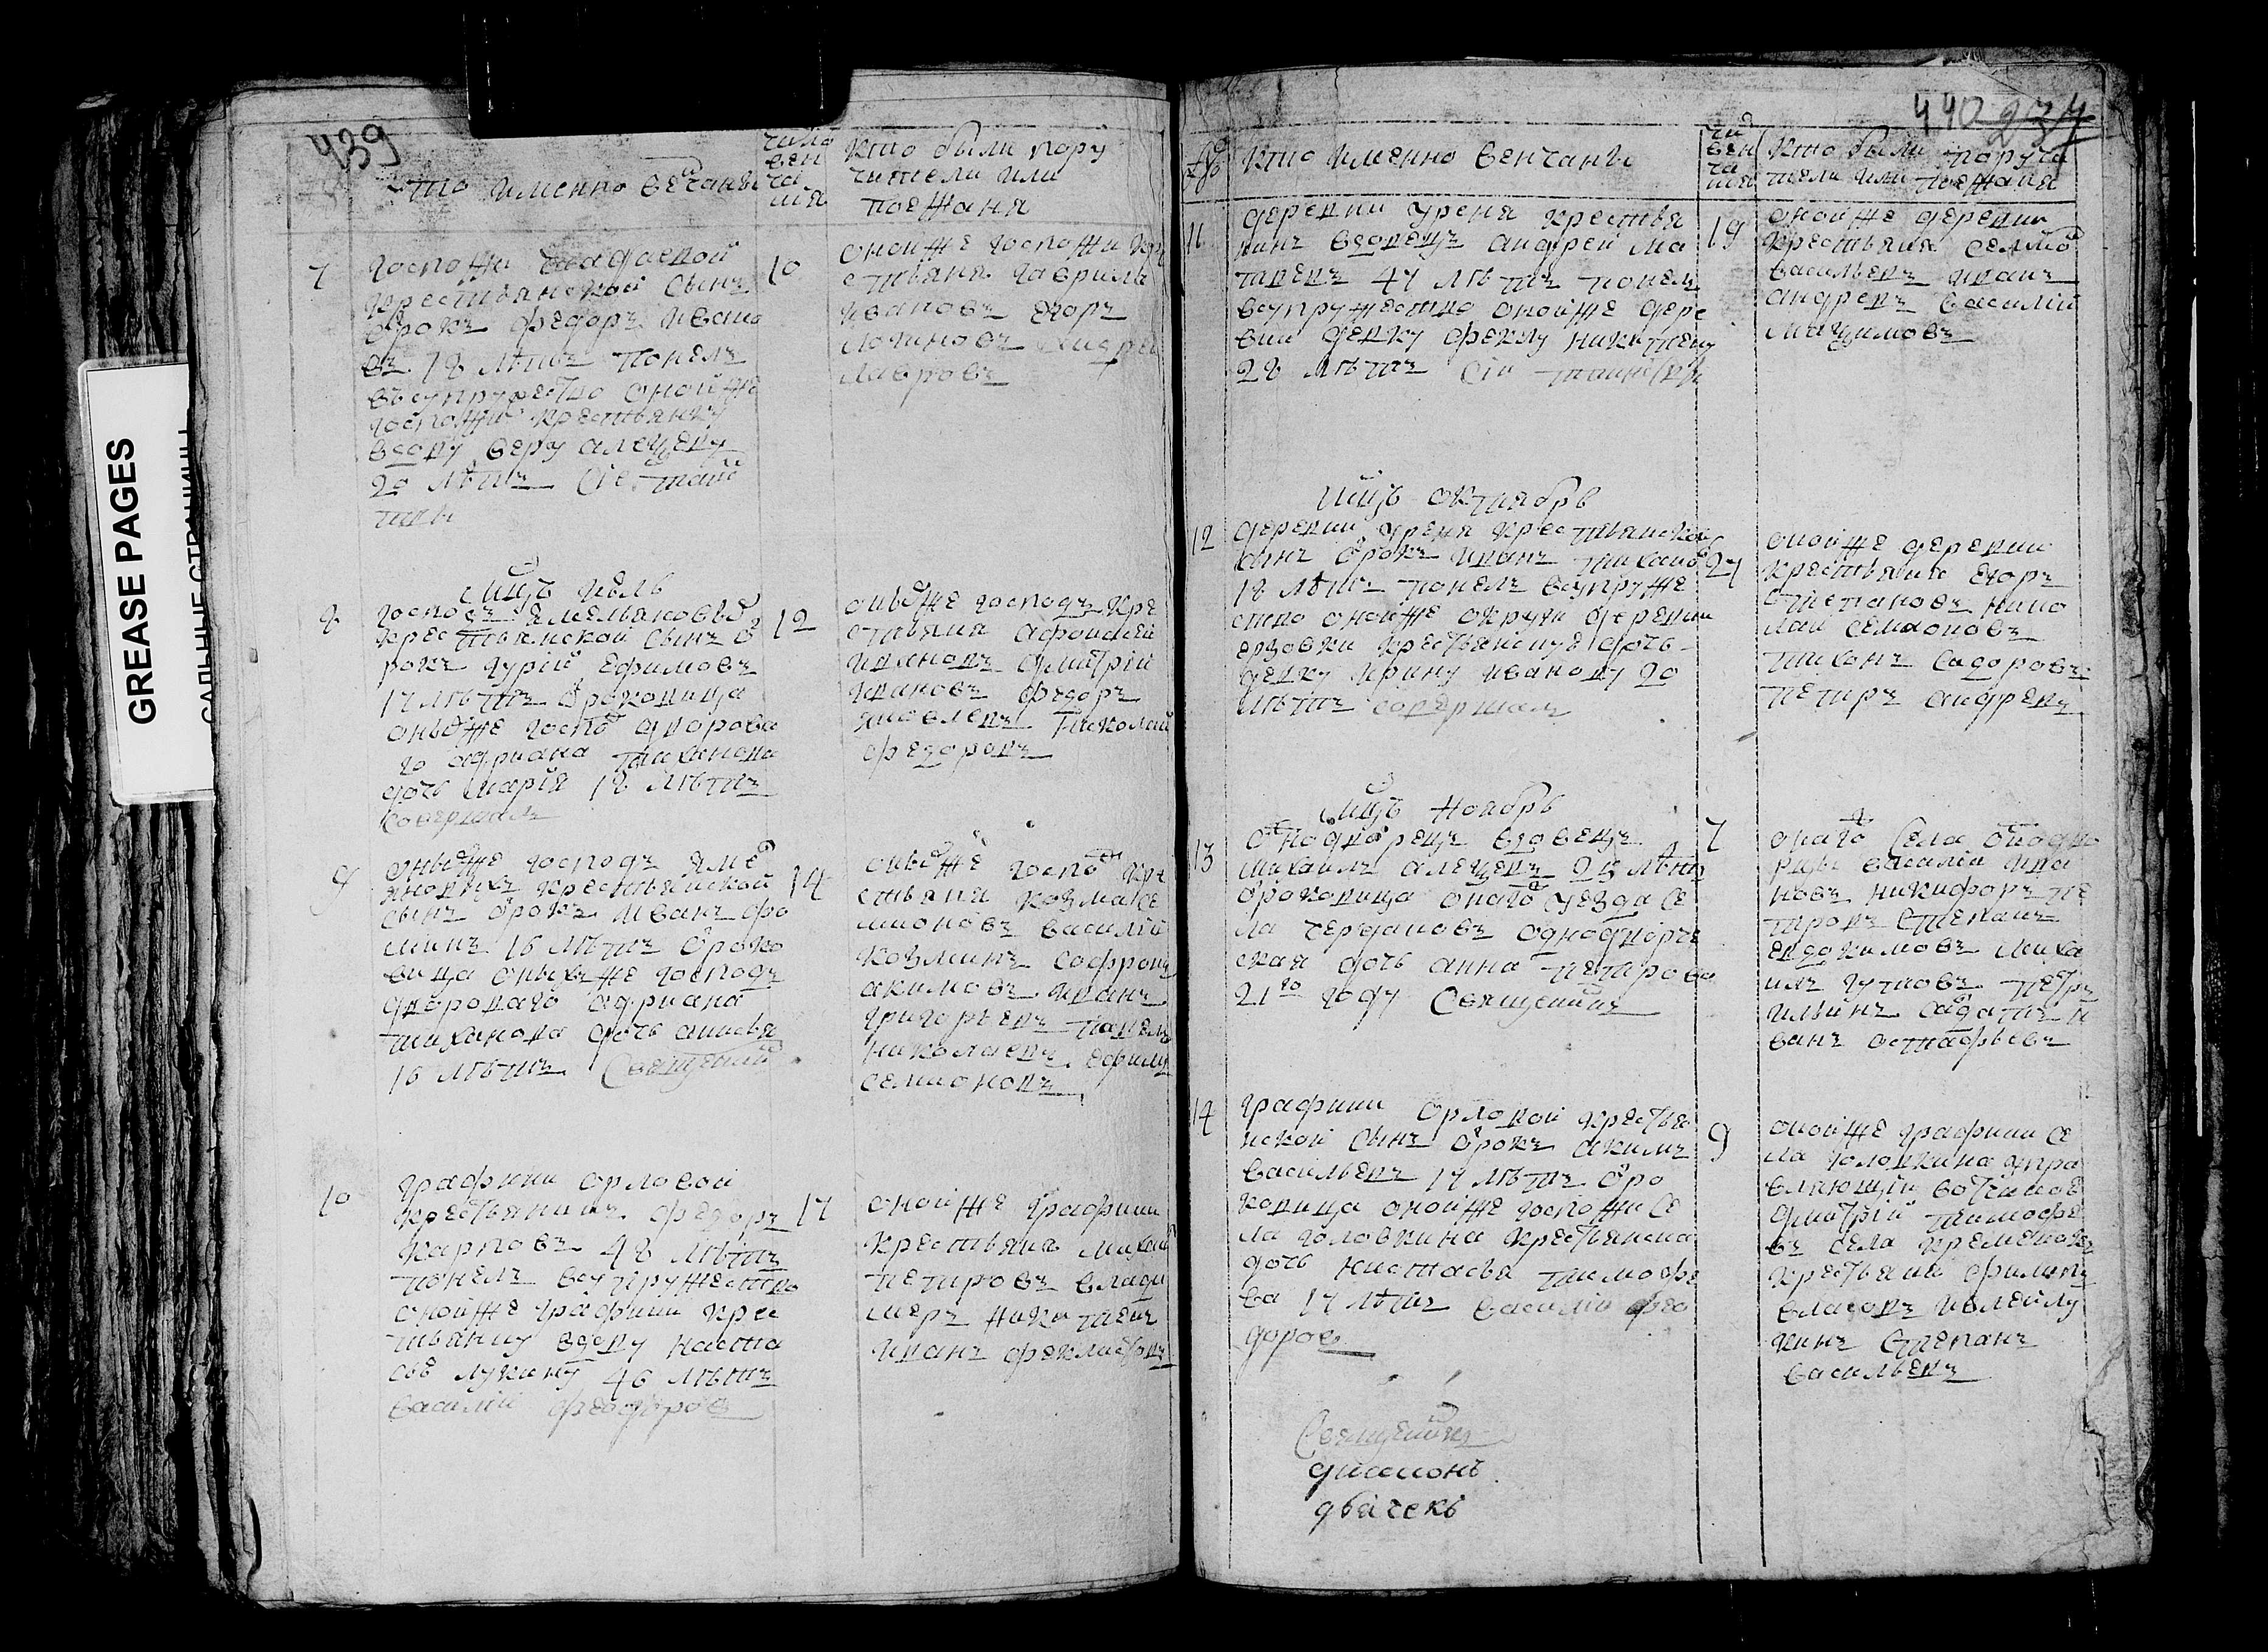 439
кто именно венчаны
число
вен
ча
ния
кто были пору
чители или
поезжаня
7
госпожи
крестьянской сынъ
отрокъ федоръ ивано
въ 18 летъ понелъ
въ супружество оной же
госпожи крестьянку
вдову веру алецеву
20 летъ
10
оной же госпожи кре
стьяня гаврила
ивановъ егоръ
логиновъ андреи
лавровъ
мцъ июль
8
господъ емельяновыхъ
крестьянской сынъ от
рокъ гурій ефимовъ
17 летъ отроковица
оныхъ же господъ дворова
го адриана тиханова
дочь марія 18 летъ
совершалъ
12
оныхъ же господъ кре
стьяня афонасей
ивановъ дмитрій
ивановъ федоръ
яковлевъ николай
федоровъ
9
оныхъ же господъ емел
яновыхъ крестьянской
сынъ отрокъ иванъ фо
минъ 16 летъ отроко
вица оныхъ же господъ
двороваго адриана
тиханова дочь анисья
16 летъ Священникъ
14
оныхъ же господъ кре
стьяня козма се
мионовъ василій
козминъ софронъ
акимовъ иванъ
григорьевъ павелъ
николаевъ ефимъ
семионовъ
10
графини орловой
крестьянинъ федоръ
карповъ 48 летъ
понелъ всупружество
оной же графини крес
тьянку вдову наста
сью лукину 46 летъ
василій феодоровъ
17
оной же графини
крестьяня михаи
петровъ влади
меръ никитаевъ
иванъ феклистовъ
440 234
кто именно венчаны
чис
вен
ча
ния
кто были поручи
тели или поезжаня
11
деревни уреня крестья
нинъ вдовецъ андрей ма
твевъ 47 летъ понелъ
всупружество оной же дере
вни девку феклу никитеву
28 летъ
19
оной же деревни
крестьяня семионъ
васильевъ иванъ
андревъ василій
мақимовъ
мцъ октябрь
12
деревни уреня крестьянской
сынъ отрокъ иванъ тихановъ
18 летъ понелъ всупруже
ство оной же округи деревни
ердовки крестьянскую дочь
девку ирину иванову 20
летъ совершалъ
27
оной же деревни
крестьяня егоръ
степановъ нико
лай семионовъ
тихонъ сидоровъ
петръ андревъ
мцъ ноябрь
13
однодворецъ вдовецъ
михаилъ алецевъ 25 летъ
отроковица онаго уезда се
ла чердановъ однодворче
ская дочь анна петрова
21го году Священникъ
7
онаго села однодво
рцы василій ива
новъ никифоръ пе
тровъ степанъ
евдокимовъ миха
илъ гутовъ петръ
ильинъ салдатъ и
ванъ остафьевъ
14
графини орловой крестья
нской сынъ отрокъ акимъ
васильевъ 17 летъ отро
ковица оной же госпожи се
ла головкина крестьянска
дочь настасья тимофе
ва 17 летъ василій фео
доровъ
9
оной же графини се
ла головкина упра
вляющій вотчиной
дмитрій тимофе
въ села кременокъ
крестьяня филипъ
власовъ
кинъ степанъ
васильевъ
Священникъ
диаконъ
дьячекъ
GREASE PAGES
САЛЬНЫЕ СТРАНИЦЫ